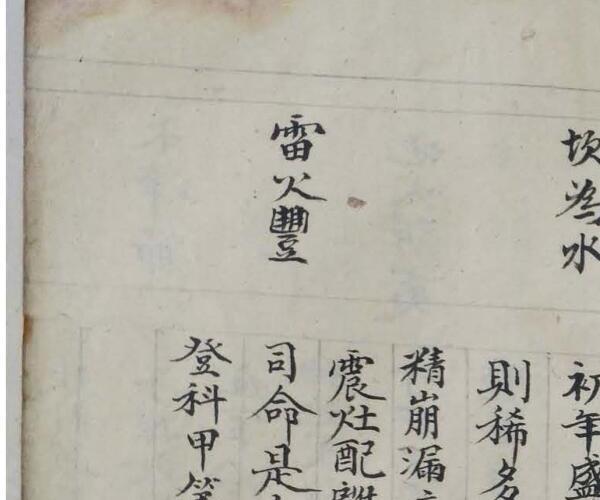 坎為水
雷火豐
初年盛
則稀名
精崩漏
震灶配離
司命是
登科甲第